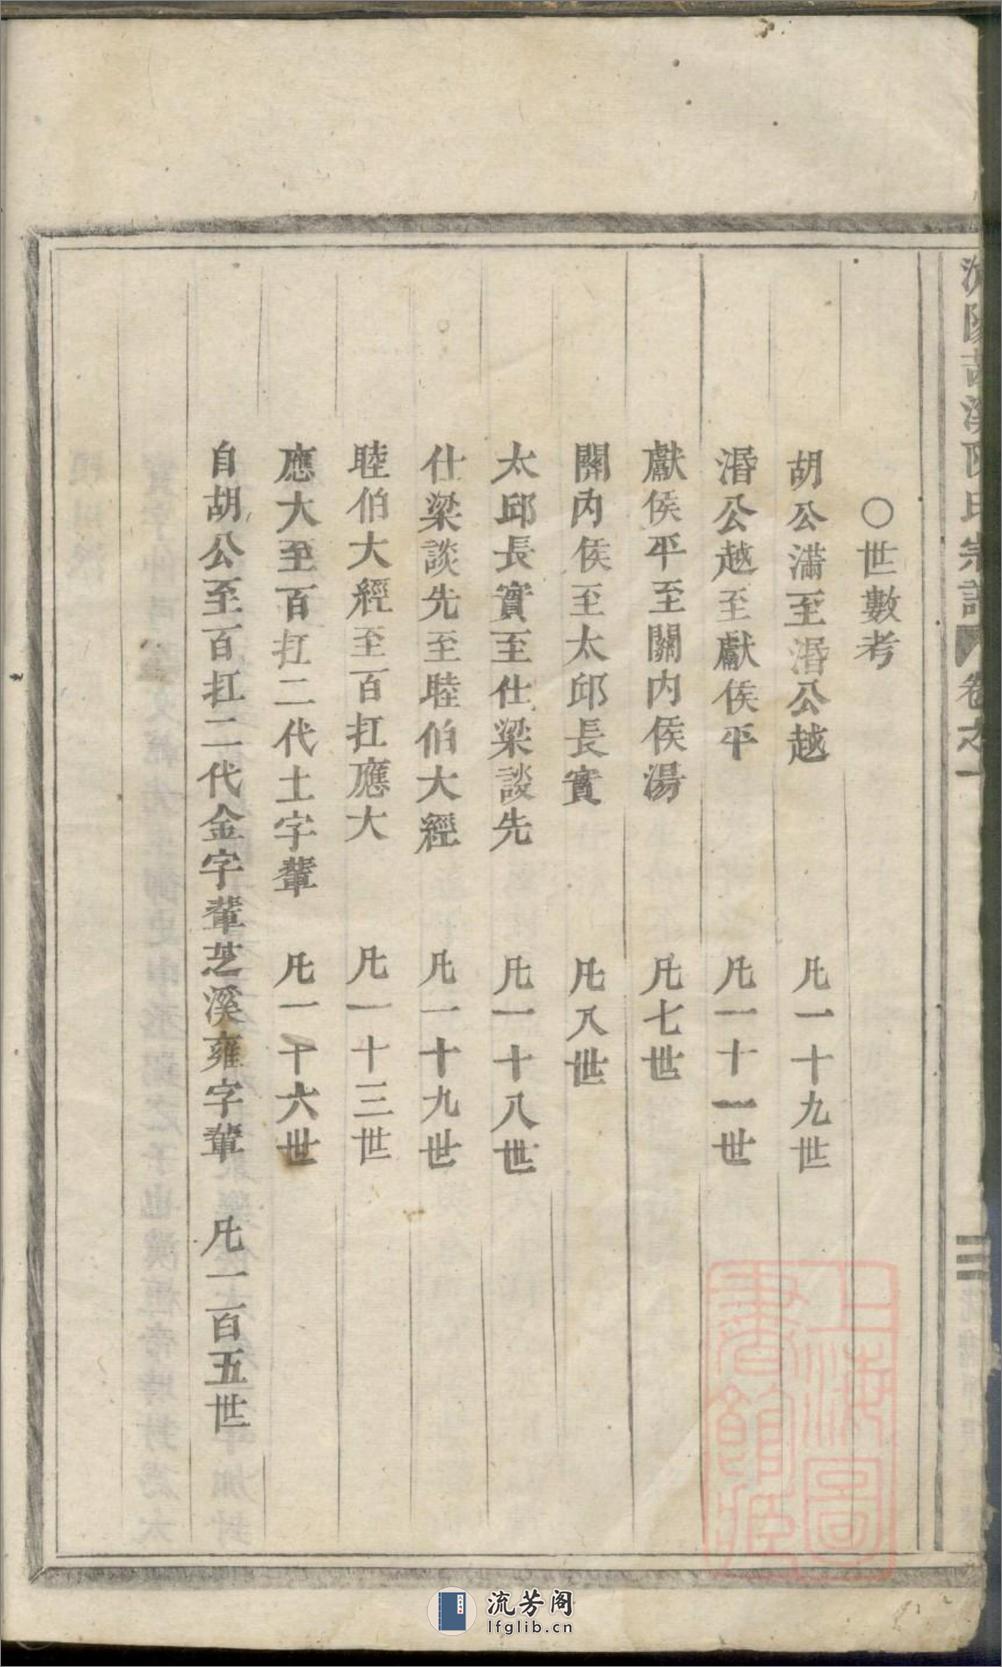 ○世數考
胡公滿至湣公越 凡一十九世
湣公越至獻侯平 凡一十一世
獻侯平至關內侯湯 凡七世
關內侯至太邱長實 凡八世
太邱長實至仕梁談先 凡一十八世
仕梁談先至睦伯大經 凡一十九世
睦伯大經至百扛應大 凡一十三世
應大至百扛二代土字輩 凡一十六世
自胡公至百扛二代金字輩芝溪雍字輩 凡一百五世
陳氏宗譜 卷之一
三
上海圖書館藏
流芳阁
lfglib.cn